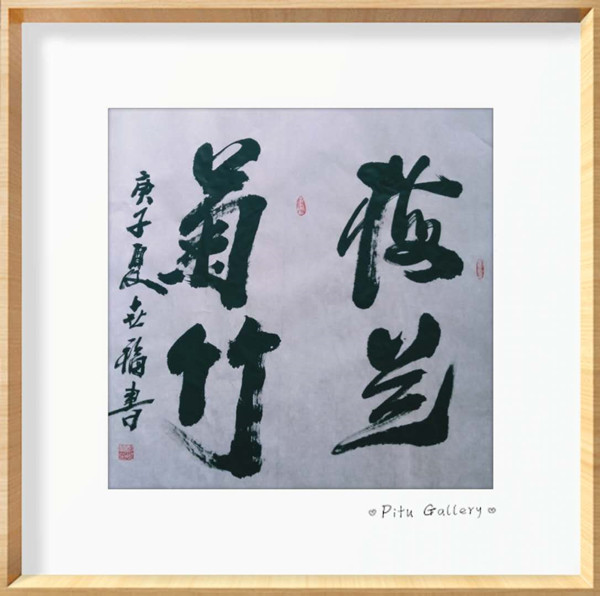 梅兰
菊竹
庚子夏世福書
Pitu Gallery